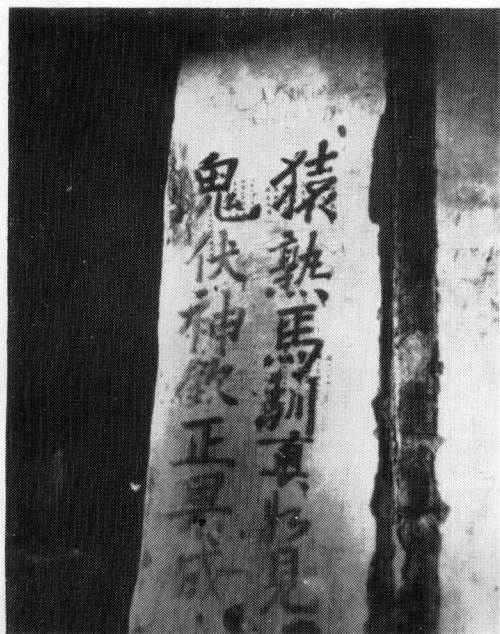 猿熟馬馴真如見
鬼伏神欽正果成